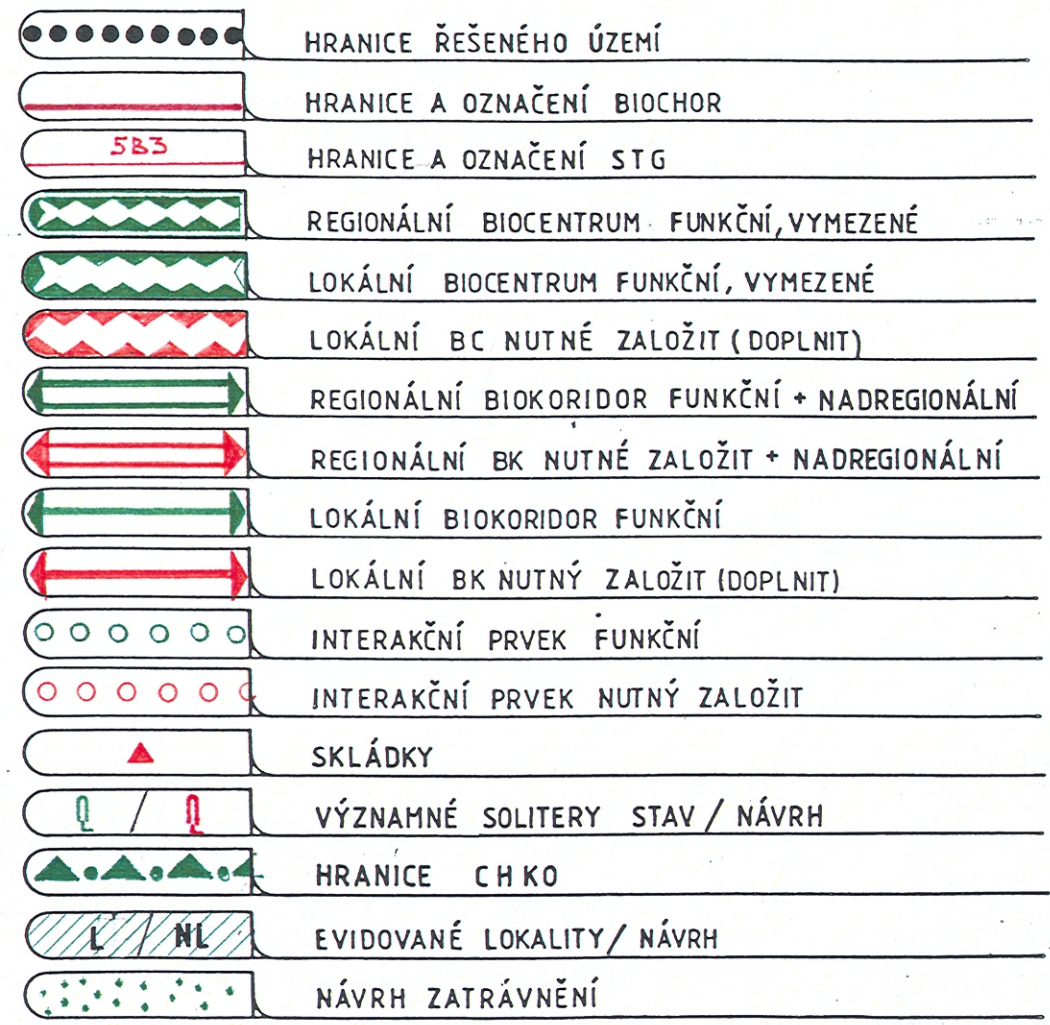 HRANICE ŘEŠENÉHO ÚZEMÍ
HRANICE A OZNAČENÍ BIOCHOR
5B3 HRANICE A OZNAČENÍ STG
REGIONÁLNÍ BIOCENTRUM FUNKČNÍ, VYMEZENÉ
LOKÁLNÍ BIOCENTRUM FUNKČNÍ, VYMEZENÉ
LOKÁLNÍ BC NUTNÉ ZALOŽIT (DOPLNIT)
REGIONÁLNÍ BIOKORIDOR FUNKČNÍ + NADREGIONÁLNÍ
REGIONÁLNÍ BK NUTNÉ ZALOŽIT + NADREGIONÁLNÍ
LOKÁLNÍ BIOKORIDOR FUNKČNÍ
LOKÁLNÍ BK NUTNÝ ZALOŽIT (DOPLNIT)
INTERAKČNÍ PRVEK FUNKČNÍ
INTERAKČNÍ PRVEK NUTNÝ ZALOŽIT
SKLÁDKY
/ VÝZNAMNÉ SOLITERY STAV / NÁVRH
HRANICE CHKO
L / NL EVIDOVANÉ LOKALITY / NÁVRH
NÁVRH ZATRÁVNĚNÍ